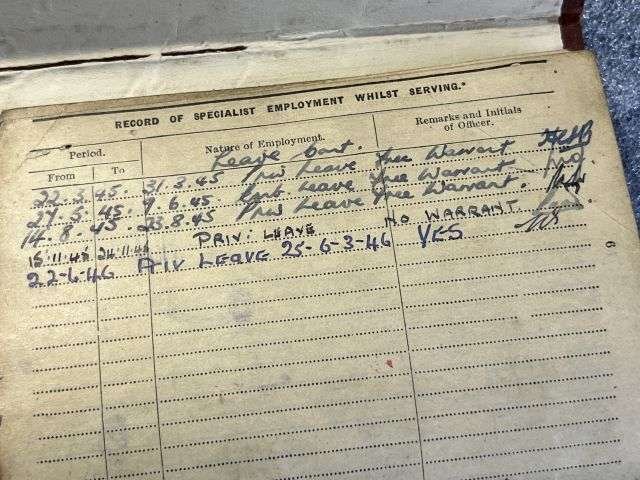 RECORD OF SPECIALIST EMPLOYMENT WHILST SERVING.*
Period. Nature of Employment. Remarks and Initials of Officer.
From To
Leave Cont.
22.3.45. 31.3.45 Priv Leave Free Warrant
27.5.45. 9.6.45 Leave Free Warrant
14.8.45 23.8.45 Priv Leave Free Warrant.
15.11.45 24.11.45 PRIV: LEAVE NO WARRANT.
22-6-46 PRIV LEAVE 25-6-3-46 YES
9